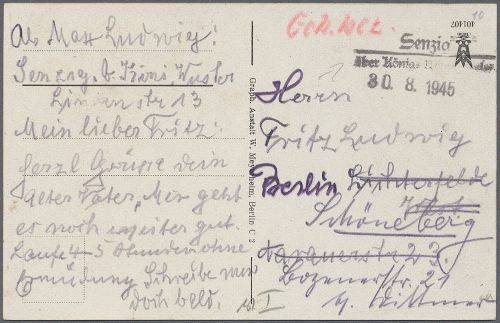 Abs Max Ludwig!
Senzig b. Königs Wuster
Lindenstr 13
Mein lieber Fritz!
Herzl Grüsse dein
alter Vater, Mir geht
es noch weiter gut.
Laufe 4-5 Stunden ohne
Ermüdung Schreibe mir
doch bald.
Graph. Anstalt W. Meyerheim, Berlin C 2
Geb. bez.
10
ZOPTOP
Senzig
über Königs
30. 8. 1945
Herrn
Fritz Ludwig
Berlin Lichterfelde
West
Schöneberg
Aarauerstr 23.
Bozenerstr. 21
b/ Wittmer
I